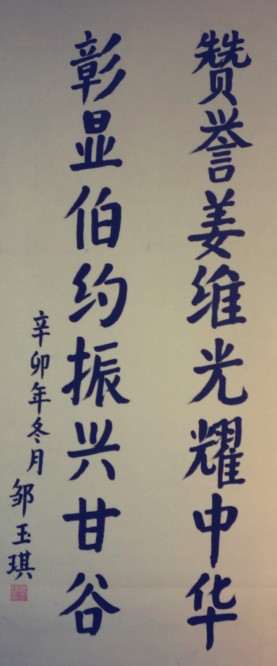 赞誉姜维光耀中华
彰显伯约振兴甘谷
辛卯年冬月
邹玉琪